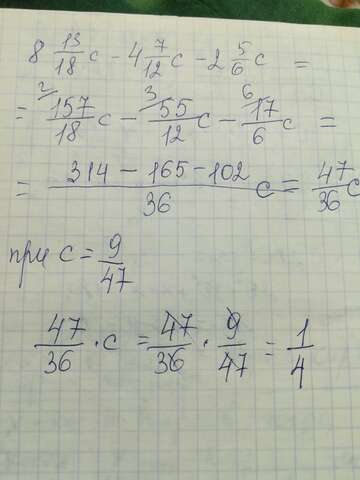 8 13/18 c - 4 7/12 c - 2 5/6 c =
= ²157/18 c - ³55/12 c - ⁶17/6 c =
= (314 - 165 - 102)/36 c = 47/36 c
при c = 9/47
47/36 · c = 47/36 · 9/47 = 1/4